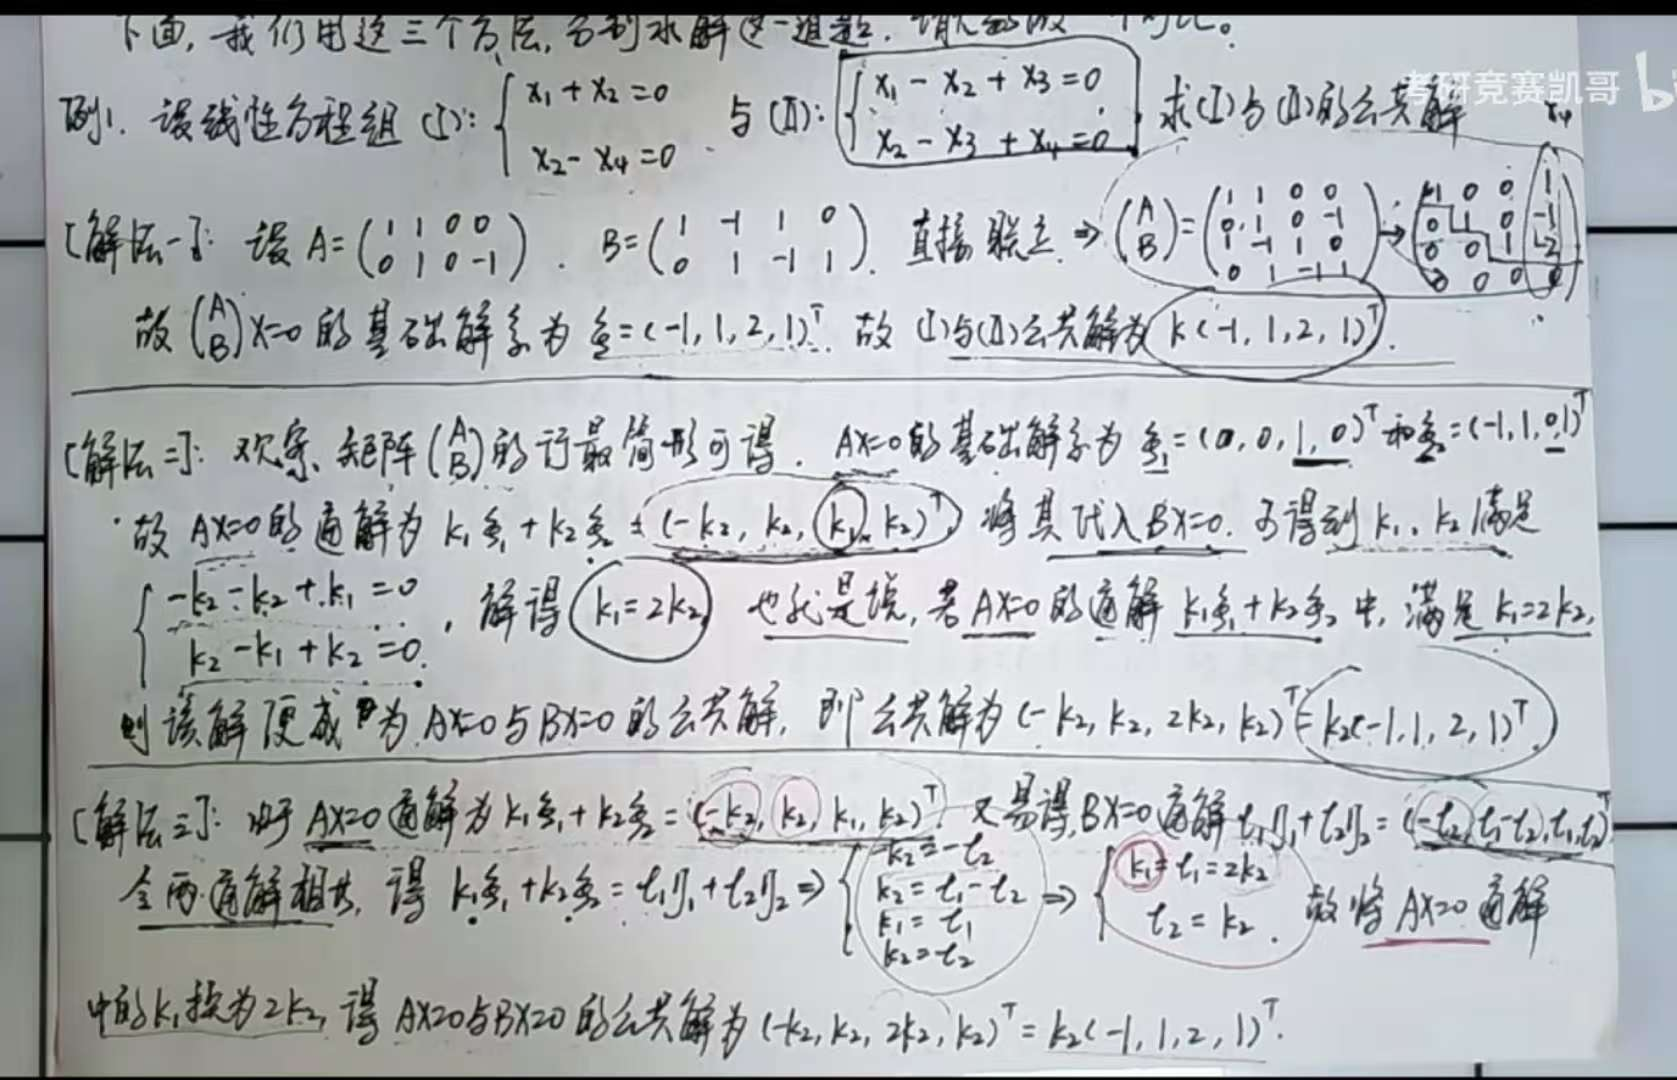 下面,我们用这三个方法,分别求解这一道题.
考研竞赛凯哥 bi
例1. 设线性方程组 (I): { x₁ + x₂ = 0 x₂ - x₄ = 0 与 (II): { x₁ - x₂ + x₃ = 0 x₂ - x₃ + x₄ = 0 , 求(I)与(II)的公共解 x₄
[解法一]: 设 A = (1 1 0 0 / 0 1 0 -1) . B = (1 -1 1 0 / 0 1 -1 1). 直接联立 ⇒ (A / B) = (1 1 0 0 / 0 1 0 -1 / 1 -1 1 0 / 0 1 -1 1) → (1 0 0 1 / 0 1 0 -1 / 0 0 1 -2 / 0 0 0 0)
故 (A / B)X=0 的基础解系为 ξ = (-1, 1, 2, 1)ᵀ. 故 (I)与(II)公共解为 k(-1, 1, 2, 1)ᵀ.
[解法二]: 观察矩阵 (A / B) 的行最简形可得. AX=0 的基础解系为 ξ₁ = (0, 0, 1, 0)ᵀ 和 ξ₂ = (-1, 1, 0, 1)ᵀ
故 AX=0 的通解为 k₁ξ₁ + k₂ξ₂ = (-k₂, k₂, k₁, k₂)ᵀ, 将其代入 BX=0. 可得到 k₁, k₂ 满足
{ -k₂ - k₂ + k₁ = 0 k₂ - k₁ + k₂ = 0. , 解得 k₁ = 2k₂, 也就是说, 若 AX=0 的通解 k₁ξ₁ + k₂ξ₂ 中, 满足 k₁=2k₂,
则该解便成为 AX=0 与 BX=0 的公共解, 即公共解为 (-k₂, k₂, 2k₂, k₂)ᵀ = k₂(-1, 1, 2, 1)ᵀ
[解法三]: 由于 AX=0 通解为 k₁ξ₁ + k₂ξ₂ = (-k₂, k₂, k₁, k₂)ᵀ. 又易得 BX=0 通解 t₁η₁ + t₂η₂ = (-t₂, t₁-t₂, t₁, t₂)ᵀ
令两通解相等, 得 k₁ξ₁ + k₂ξ₂ = t₁η₁ + t₂η₂ ⇒ { -k₂ = -t₂ k₂ = t₁ - t₂ k₁ = t₁ k₂ = t₂ ⇒ { k₁ = t₁ = 2k₂ t₂ = k₂ . 故将 AX=0 通解
中的 k₁ 换为 2k₂, 得 AX=0 与 BX=0 的公共解为 (-k₂, k₂, 2k₂, k₂)ᵀ = k₂(-1, 1, 2, 1)ᵀ.